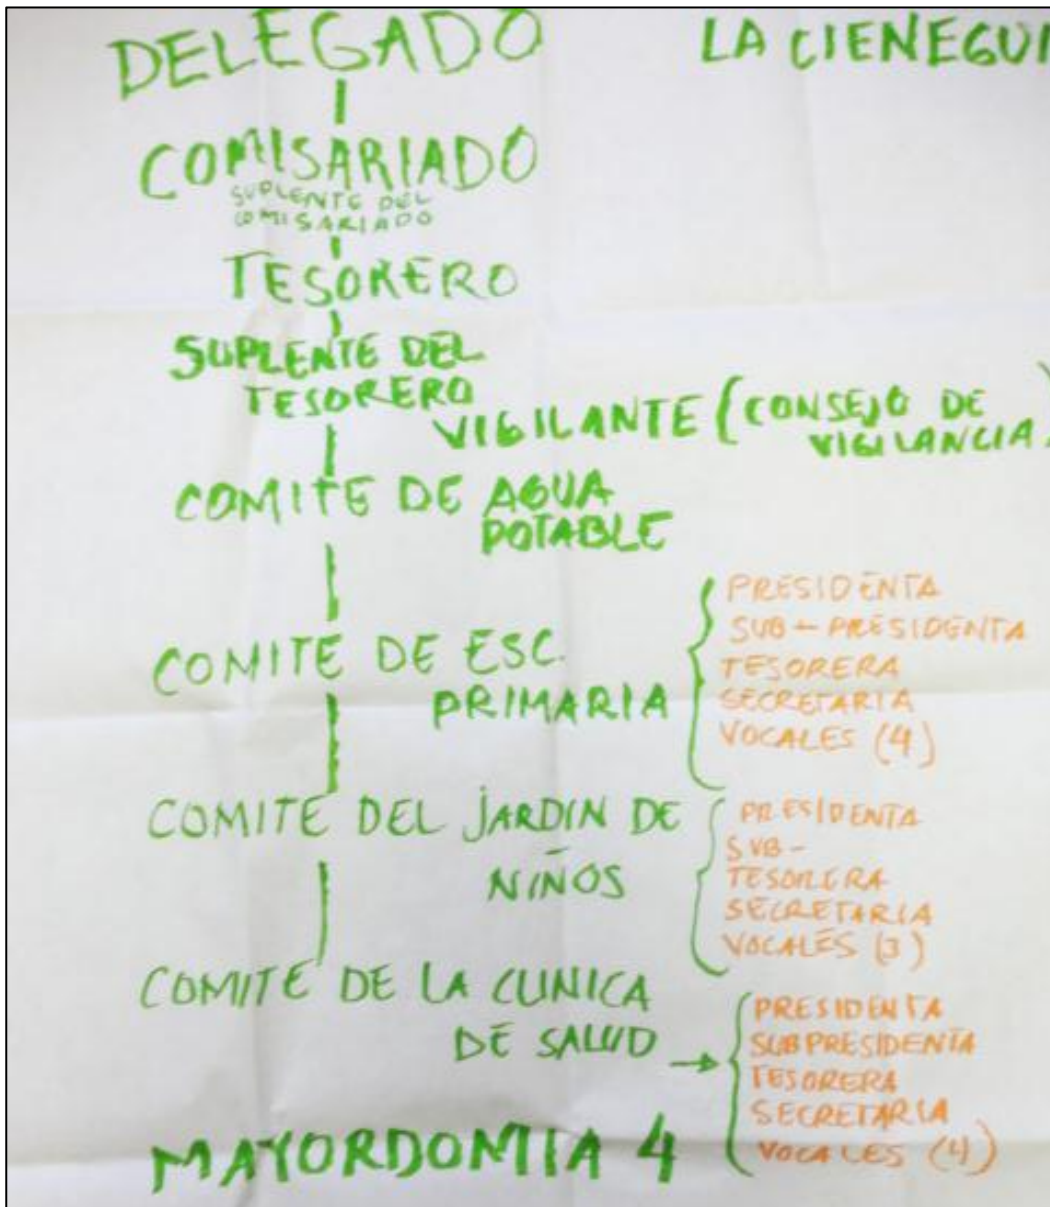 DELEGADO
LA CIENEGUI
COMISARIADO
SUPLENTE DEL
COMISARIADO
TESORERO
SUPLENTE DEL
TESORERO
VIGILANTE (CONSEJO DE
VIGILANCIA)
COMITE DE AGUA
POTABLE
COMITE DE ESC.
PRIMARIA
PRESIDENTA
SUB-PRESIDENTA
TESORERA
SECRETARIA
VOCALES (4)
COMITE DEL JARDIN DE
NIÑOS
PRESIDENTA
SUB-
TESORERA
SECRETARIA
VOCALES (3)
COMITE DE LA CLINICA
DE SALUD →
PRESIDENTA
SUBPRESIDENTA
TESORERA
SECRETARIA
VOCALES (4)
MAYORDOMIA 4